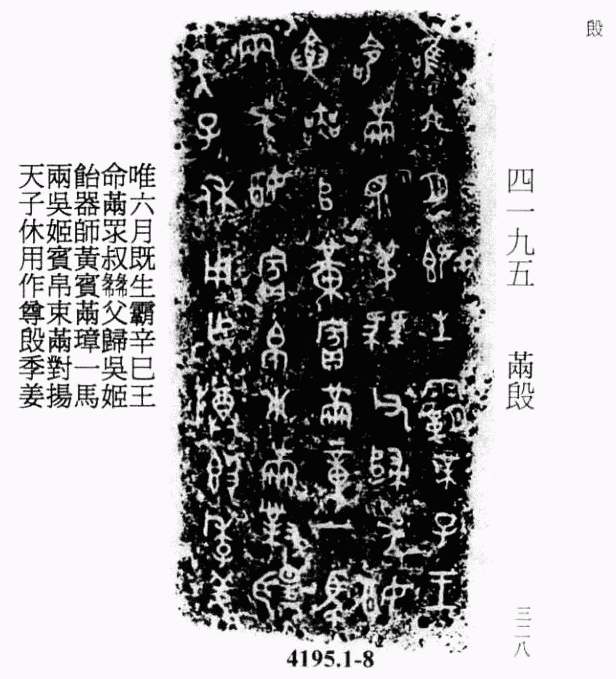 𣪘
四一九五 㒼𣪘
三二八
唯六月既生霸辛巳王
命㒼眔叔父歸吳姬
飴器師黃賓㒼璋一馬
兩吳姬賓帛束㒼對揚
天子休用作尊𣪘季姜
4195.1-8